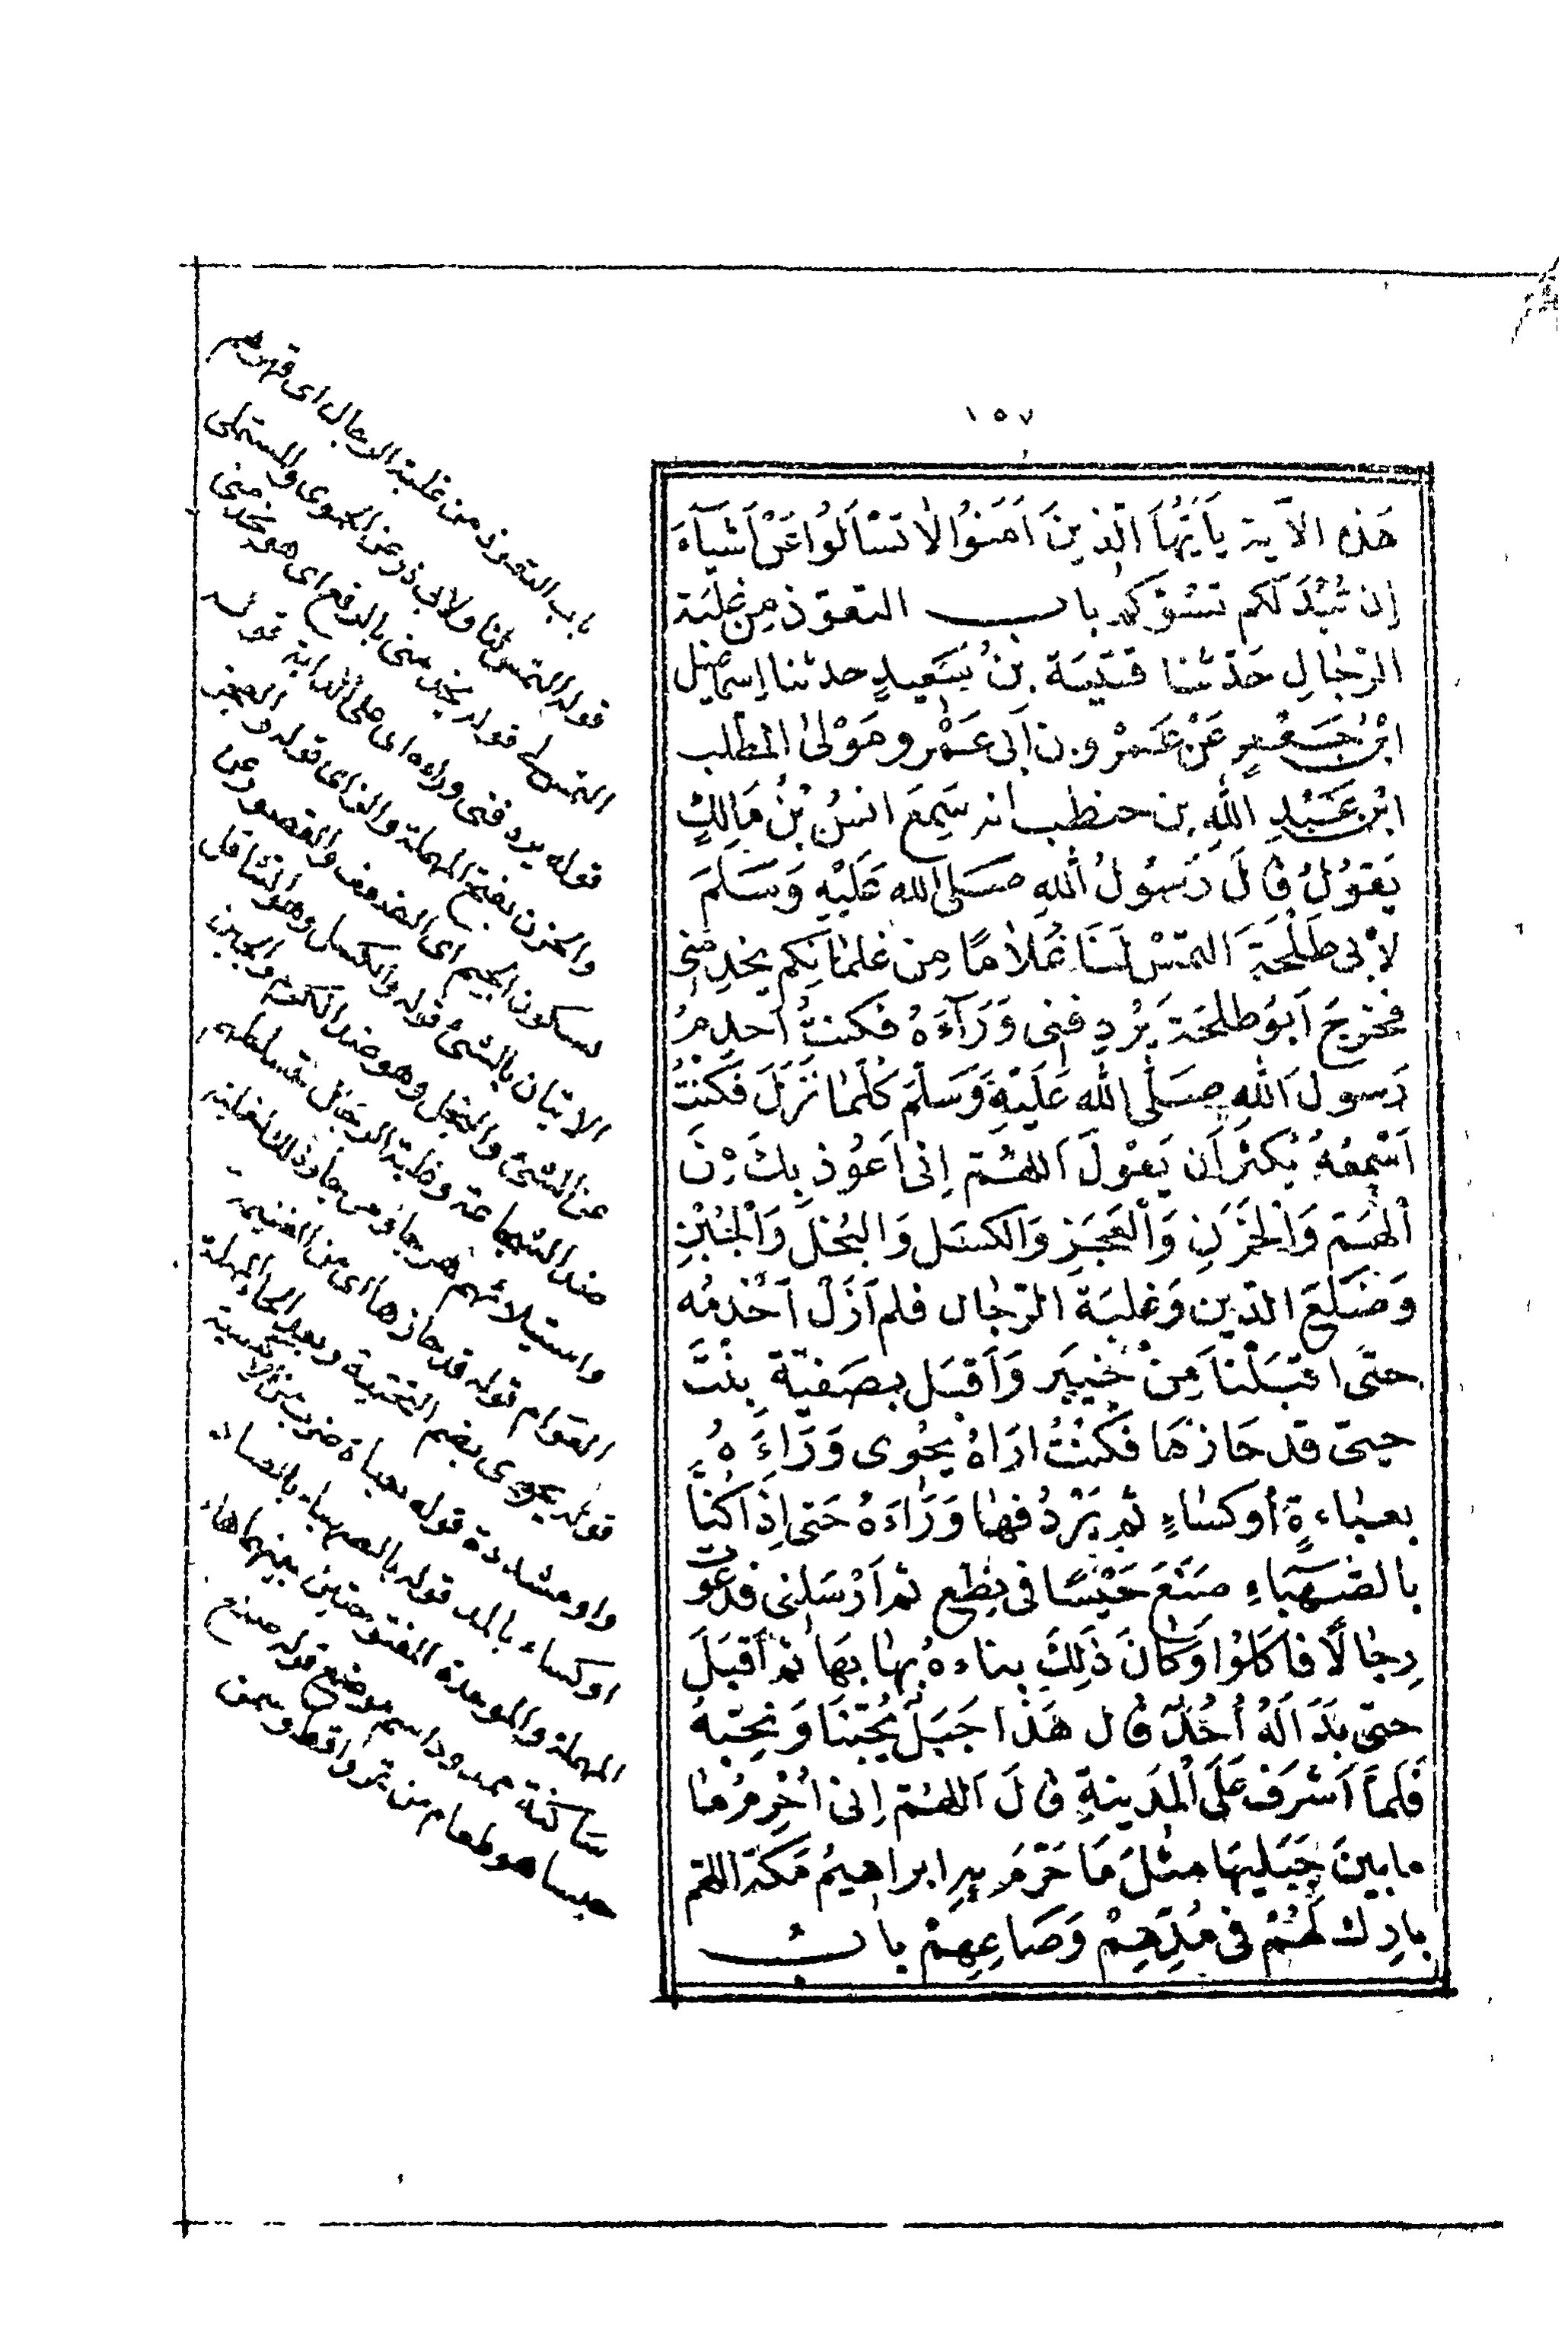 ١٥٧
هَذِه الآية يَا أَيُّهَا الَّذِينَ آمَنُوا لَا تَسْأَلُوا عَنْ أَشْيَآءَ
إِن تُبْدَ لَكُم تَسُؤْكم باب التعوّذ مِن غلَبَة
الرّجَالِ حَدّثنا قتَيبَة بن سَعِيدٍ حدثنا إسمعيل
ابْنُ جَعْفَرٍ عَنْ عَمْرو بن أبى عَمْرو مَوْلى المطّلب
ابْن عَبْدِ اللهِ بن حنطب انه سَمِعَ انسُ بْنُ مَالِكٍ
يَقولُ قالَ رَسُولُ اللهِ صَلى الله عَلَيْهِ وَسَلمَ
لأَبى طَلْحَةَ التمسْ لَنَا غُلَامًا مِن غلمَانِكم يخدِمنى
فخرجَ أبو طلحَة يُرْدِفنى وَرَآءَهُ فكنتُ أخدِمُ
رَسولَ اللهِ صَلَّى الله عَلَيْهِ وَسَلمَ كُلّما نَزَلَ فَكُنْتُ
أسْمَعُهُ يُكثر أن يَقولَ اللهُمّ إنى أعُوذ بِكَ مِنَ
الهَمّ وَالحَزَنِ وَالعَجْزِ وَالكسَل وَالبُخل وَالجُبْنِ
وَضَلَعِ الدّين وَغلبَة الرّجال فلم أزَلْ أخْدمُه
حتّى اقبَلْنا مِنْ خَيبَر وَأقبَل بصَفيّة بِنْتَ
حيىّ قد حَازهَا فكُنْتُ ارَاهُ يحُوى وَرَاءَهُ
بعبَاءةٍ أو كسَاءٍ ثم يَرْدُفهَا وَرَاءَهُ حَتى إذَا كُنّا
بالصّهبَاءِ صَنَعَ حَيْسًا فى نِطع ثم أرْسَلنى فدعَوت
رجَالًا فأكَلُوا وَكَانَ ذَلِكَ بناءهُ بهَا ثم أقبَلَ
حتّى بَدَا لَهُ أحُدٌ قال هَذا جَبَلٌ يُحبّنَا وَنحِبّهُ
فَلمّا أشرَف عَلَى المَدِينةِ قالَ اللهُمّ إنى أحَرِّمُ مَا
ما بين جَبَليهَا مثلَ مَا حَرّمَ بهِ ابراهيمُ مَكّة اللهمّ
بارِك لَهُمْ فى مُدِّهِمْ وَصَاعِهِمْ بابُ
باب التعوذ من غلبة الرجال اى قهرهم
قوله التمس لنا ولابى ذر عن الحموى والمستملى
التمس لى قوله يخدمنى بالرفع اى هو يخدمنى
قوله يردفنى وراءه اى على الدابة قوله
والحزن بفتح المهملة والزاى قوله والعجز
بسكون الجيم اى الضعف والقصور عن
الاتيان بالشئ قوله والكسل وهو التثاقل
عن الشئ والبخل وهو ضد الكرم والجبن
ضد الشجاعة وغلبة الرجال تسلطهم
واستيلائهم هرجا ومرجا وذلك لغلبة
العوام قوله قد حازها اى من الغنيمة
قوله يحوى بضم التحتية وبعد الحاء المهملة
واو مشددة قوله بعباءة ضرب من الاكسية
او كساء بالمد قوله بالصهباء بالصاد
المهملة والموحدة المفتوحتين بينهما هاء
ساكنة ممدود اسم موضع قوله صنع
حيسا هو طعام من تمر واقط وسمن